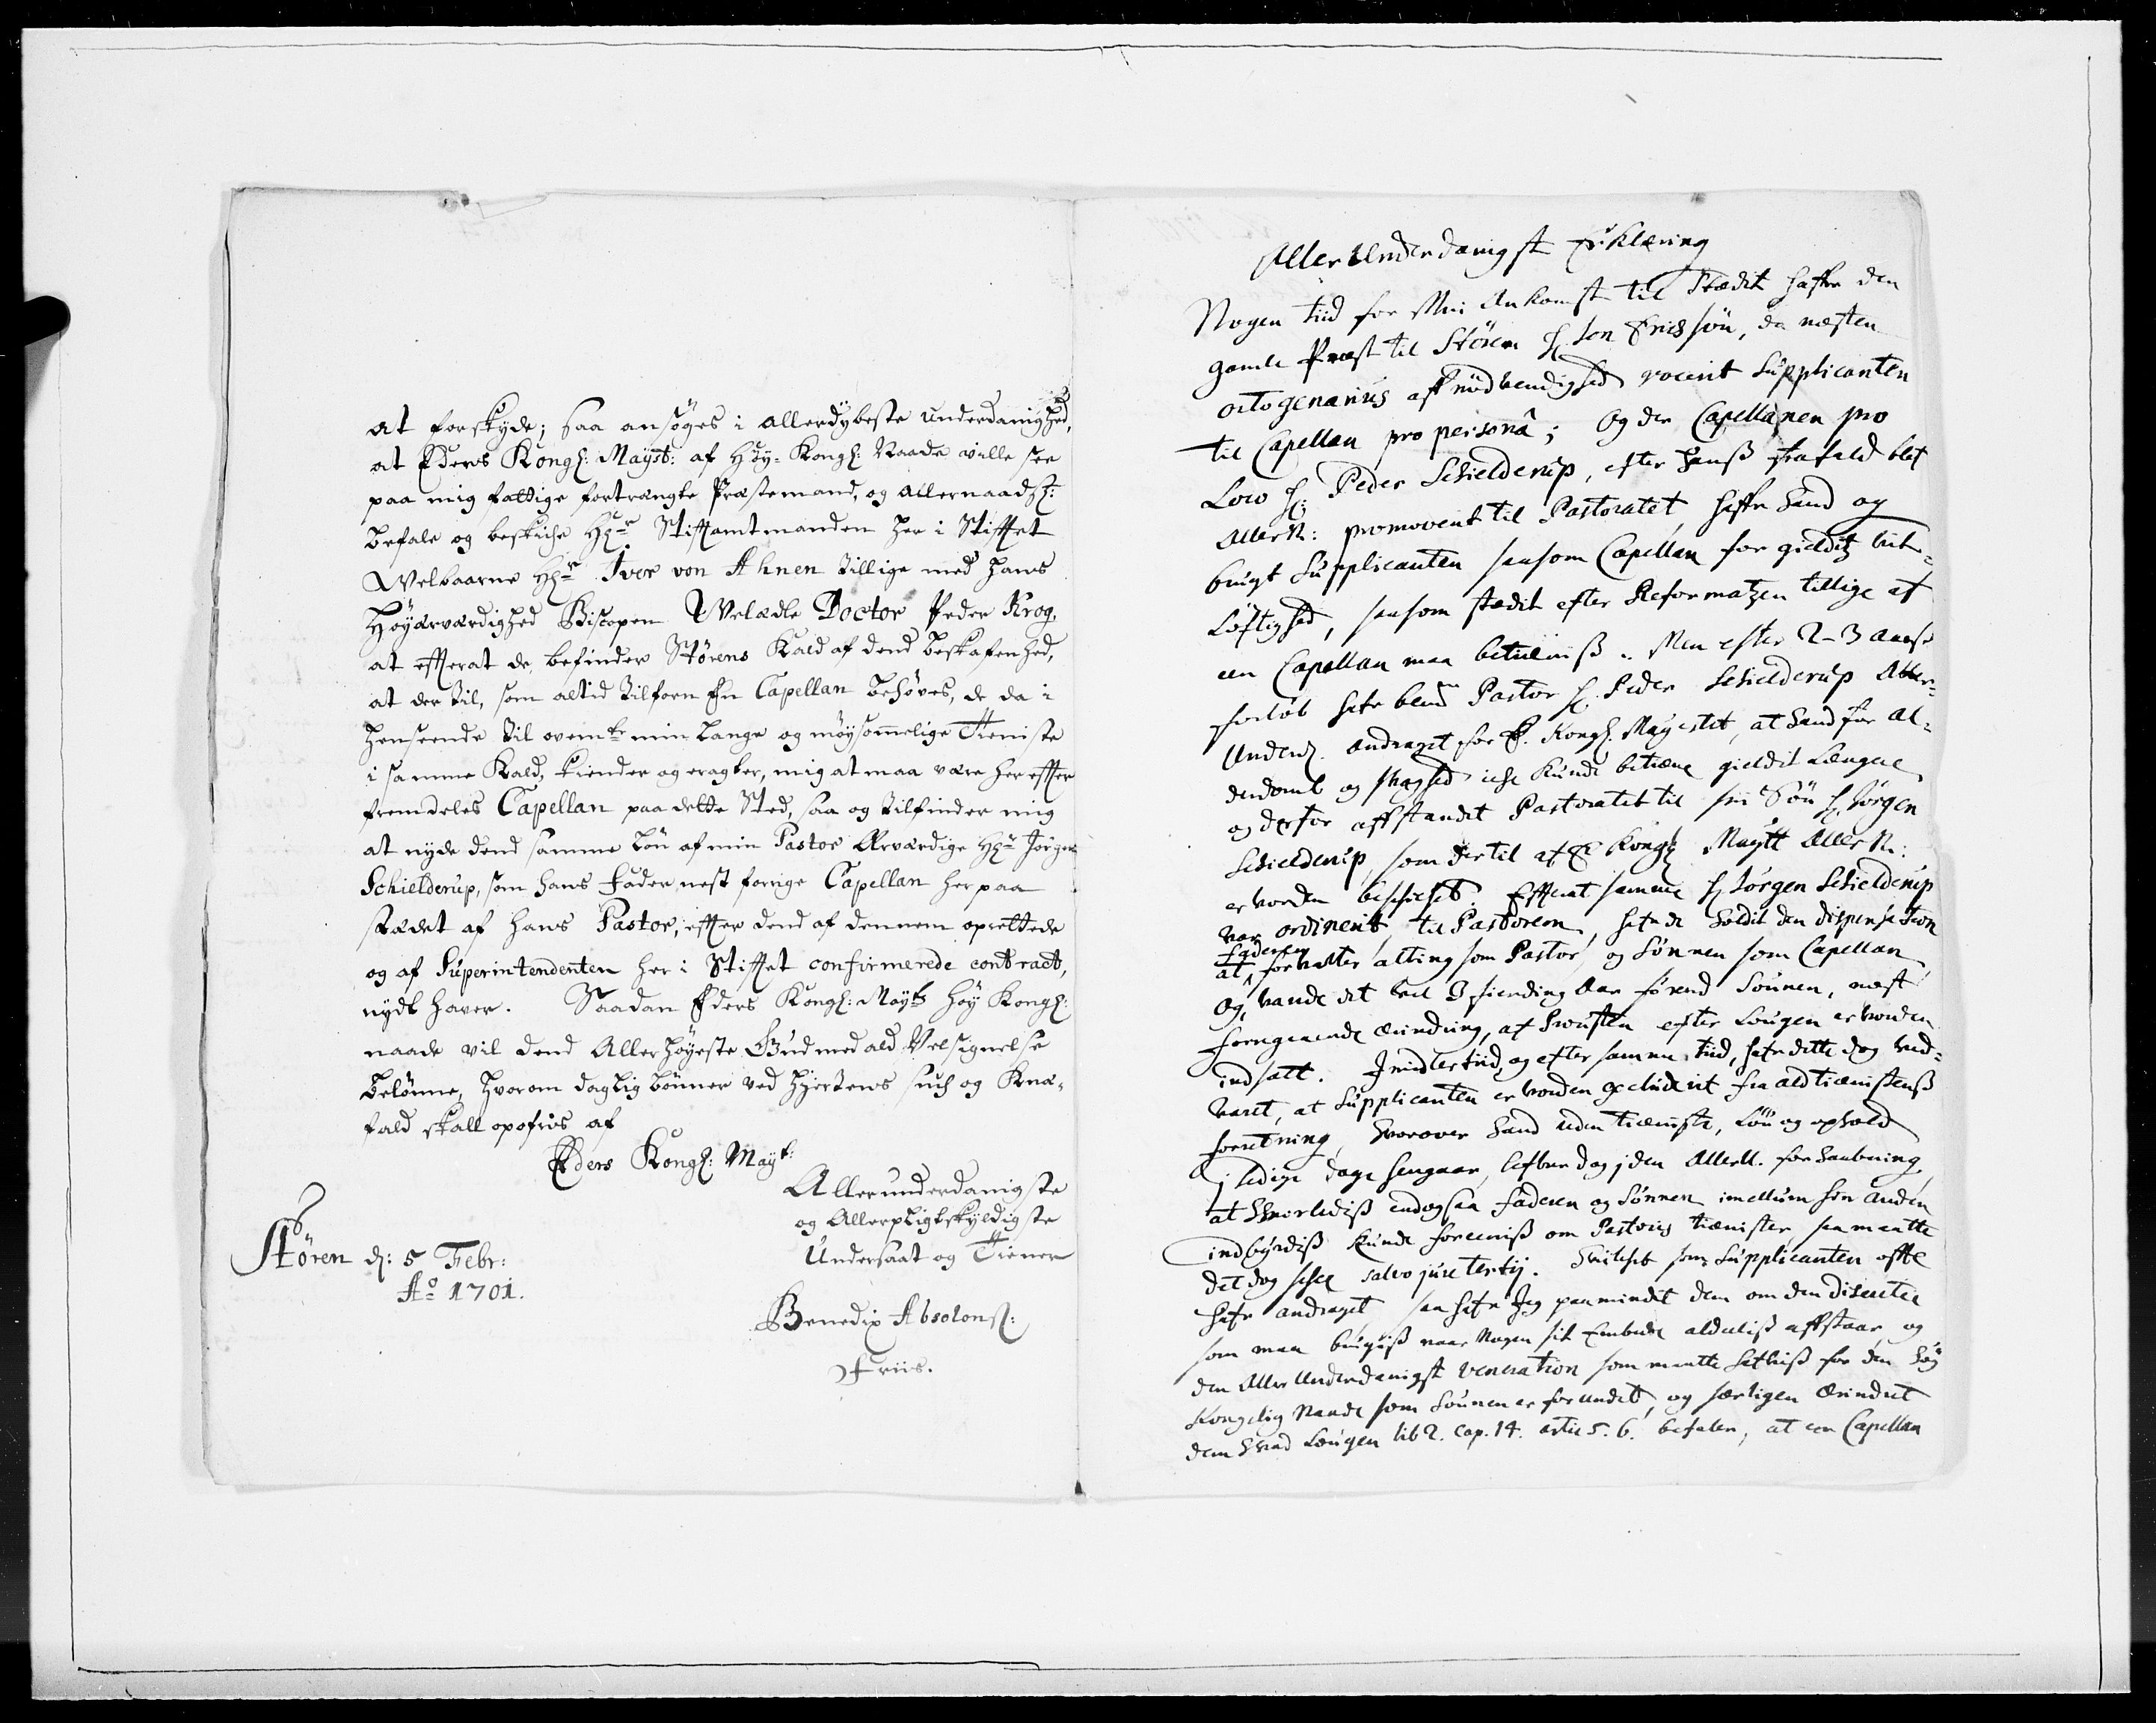 at forskyde; saa ansøges i allerdybeste underdanighed,
at Eders Kongl: Mayst: af Høy-Kongl: Naade ville see
paa mig fattige fortrængte Præstemand, og allernaadst:
befale og beskiche Hr Stiftamtmanden her i Stiftet
Welbaarne Hr Iver von Ahnen tillige med hans
Høyærværdighed Biscopen Welædle Doctor Peder Krog,
at efferat de befinder Størens Kald af dend beskafenhed,
at der til, som altid tilforn En Capellan behøves, de da i
henseende til ovenbte min lange og møysommelige Tieniste
i samme Kald, kiender og eragter, mig at maa være her effter
fremdeles Capellan paa dette Sted, saa og tilfinder mig
at nyde dend samme løn af min Pastor Ærværdige Hr Jørgen
Schielderup, som hans Fader nest forrige Capellan her paa
stædet af hans Pastor, effter dend af dennem oprettede
og af Superintendenten her i Stiftet confirmerede contract,
nydt haver. Saadan Eders Kongl: Mayts høy Kongl:
naade vil dend Allerhøyeste Gud med ald Velsignelse
belønne, hvorom daglig bønner ved hjertens such og Knæ-
fald skall opofris af
Eders Kongl: Mayt:
Allerunderdanigste
og Allerpligtskyldigste
Undersaat og Tiener
Støren d: 5 Febr:
Ao 1701.
Benedix Absolons:
Friis.
Aller Underdanigst Erklæring
Nogen tiid for Min Ankomst til Stædit hafde den
gamle Præst til Støren H Jon Erichsøn, da næsten
octogenarius aff nødvendighed vocerit Supplicanten
til Capellan pro personâ; Og der Capellanen pro
Loco H: Peder Schielderup, efter hanss frafald blef
AllerN: promoverit til Pastoratet, hafde hand og
brugt Supplicanten saasom Capellan for gieldetz vit-
løftighed, saasom stædit efter Reformatzen tillige af
een Capellan maa betieniss. Men efter 2-3 aars
forløb hafr bemte Pastor H. Peder Schielderup Aller-
Underd. andraget for E. Kongl. Mayestet, at hand for al-
derdomb og svaghed iche kunde betiene gieldit længere
og derfor affstandet Pastoratet til sin Søn H. Jørgen
Schielderup, som dertil af E Kongl Maytt AllerN:
er vorden beschichet. Efterat samme H Jørgen Schielderup
var ordinerit til Pastorem, hafr de holdit den dispensation
at Faderen forvalter alting som Pastor og Sønnen som Capellan
Og vaarde det vel 3 fierding Aar førend Sønnen, næst
forregaaende erindring, af Provsten efter Lougen er vorden
indsatt. Imidlertiid, og efter samme tiid, hafr dette dog ved-
varet, at Supplicanten er vorden excluderit fra ald tienistens
forretning, hvorover hand uden tieniste, løn og ophold
i ledige dage hengaar, lefver dog i den AllerU. forhaabning,
at hvorledis endogsaa Faderen og Sønnen imellum hin anden
indbyrdiss kunde foreeniss om Pastoris tienister, saa maatte
det dog schee salvo jure tertij. Hvilchet som Supplicanten offte
hafr andraget, saa hafr Jeg paamindet dem om den discretie
som maa brugiss naar Nogen sit Embede aldeeliss affstaar, og
den Aller Underdanigst veneration som maatte hafviss for den høy
Kongelig Naade som Sønnen er forundet, og særligen Erindret
dem hvad Lougen lib 2. Cap. 14. artic 5. 6. befaler, at een Capellan